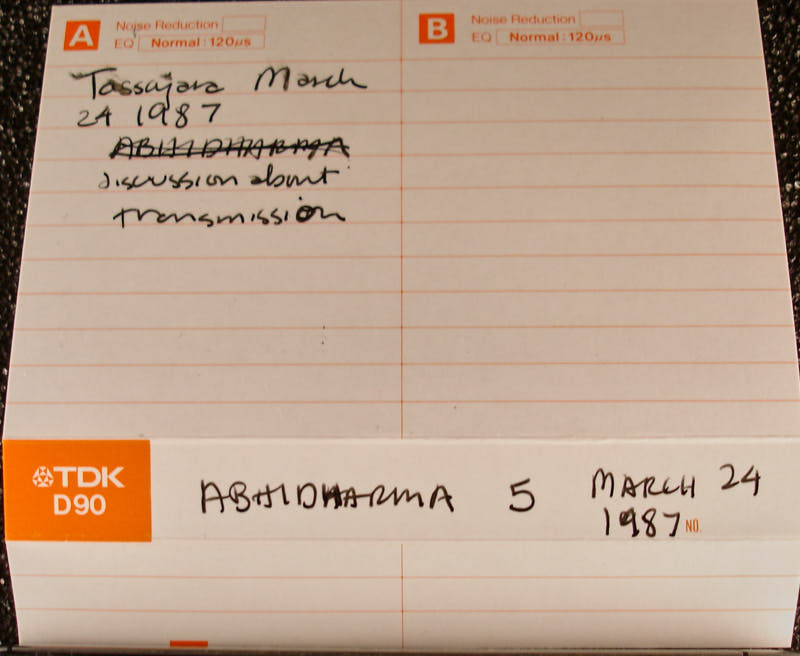 A Noise Reduction
EQ Normal : 120µs
B Noise Reduction
EQ Normal : 120µs
Tassajara March
24 1987
ABHIDHARMA
discussion about
transmission
TDK
D90
ABHIDHARMA 5 MARCH 24
1987 NO.